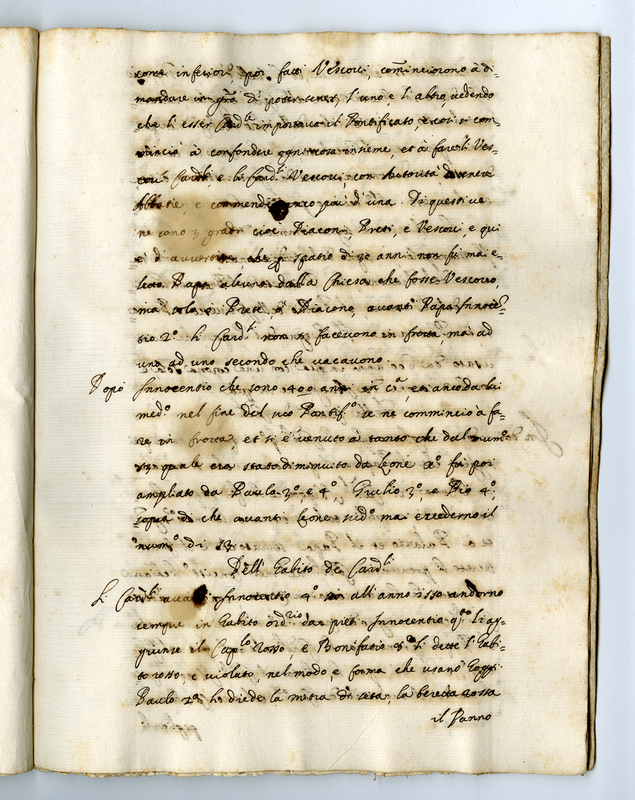 come inferiori, poi fatti Vescovi, cominciorono à di=
mandare in gra di poter tener, l'uno e l'altro, vedendo
che l'esser Card.le importava il Pontificato, e così si com=
inciò à confondre ogni cosa insieme, et à fare li Ves=
covi Card.li, e li Card.li Vescovi, con Autorità di tenere
Abbatie, e commende anco più d'una. Di questi ve
ne sono 3 gradi cioè Diaconi, Preti, e Vescovi, e qui
e d'avvertire che spatio di 30 anni non fù ma e=
letto Papa alcuno dalla Chiesa che fosse Vescovo,
ma solo ò Prete, ò Diacono, avanti Papa Innocē=
tio 2.º li Card.li non si facevono in frotta, ma ad
uno ad uno secondo che vacavono.
Dopò Innocentio che sono 400 anni in c.a, et anco da lui
med.º nel fine del suo Pontif.º se ne comminciò à fa=
re in frotta, et si è venuto à tanto che dal num.º
quale era stato diminuito da leone x.º fù poi
ampliato da Paulo 3.º, e 4.º, Giulio 3.º, e Pio 4.º,
di che avanti leone sud.º mai excederno il
num.º di
Dell'Habito de Card.li
Li Card.li avanti Innocentio 4.º sin all'anno 1250 andorno
sempre in habito ord.rio da preti Innocentio q.to li ag=
giunse il Cap.lo rosso, e Bonifatio 8.º li dette l'habi=
to rosso, e violato, nel modo e forma che usano hoggi.
Paulo 2.º li diede la mitra di seta, la beretta rossa
il Panno